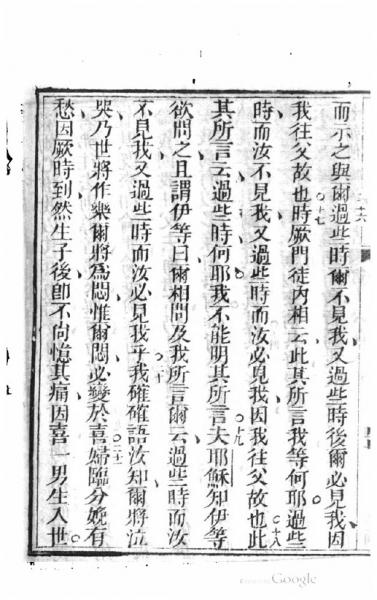 而示之與爾過些時爾不見我又過些時後爾必見我因
我往父故也時厥門徒内相云此其所言我等何耶過些
時而汝不見我又過些時而汝必見我因我往父故也此
其所言云過些時何耶我不能明其所言夫耶穌知伊等
欲問之且謂伊等曰爾相問及我所言爾云過些時而汝
不見我又過些時而汝必見我乎我確確語汝知爾將泣
哭乃世將作樂爾將為悶惟爾悶必變於喜婦臨分娩有
愁因厥時到然生子後即不尚憶其痛因喜一男生入世
Google